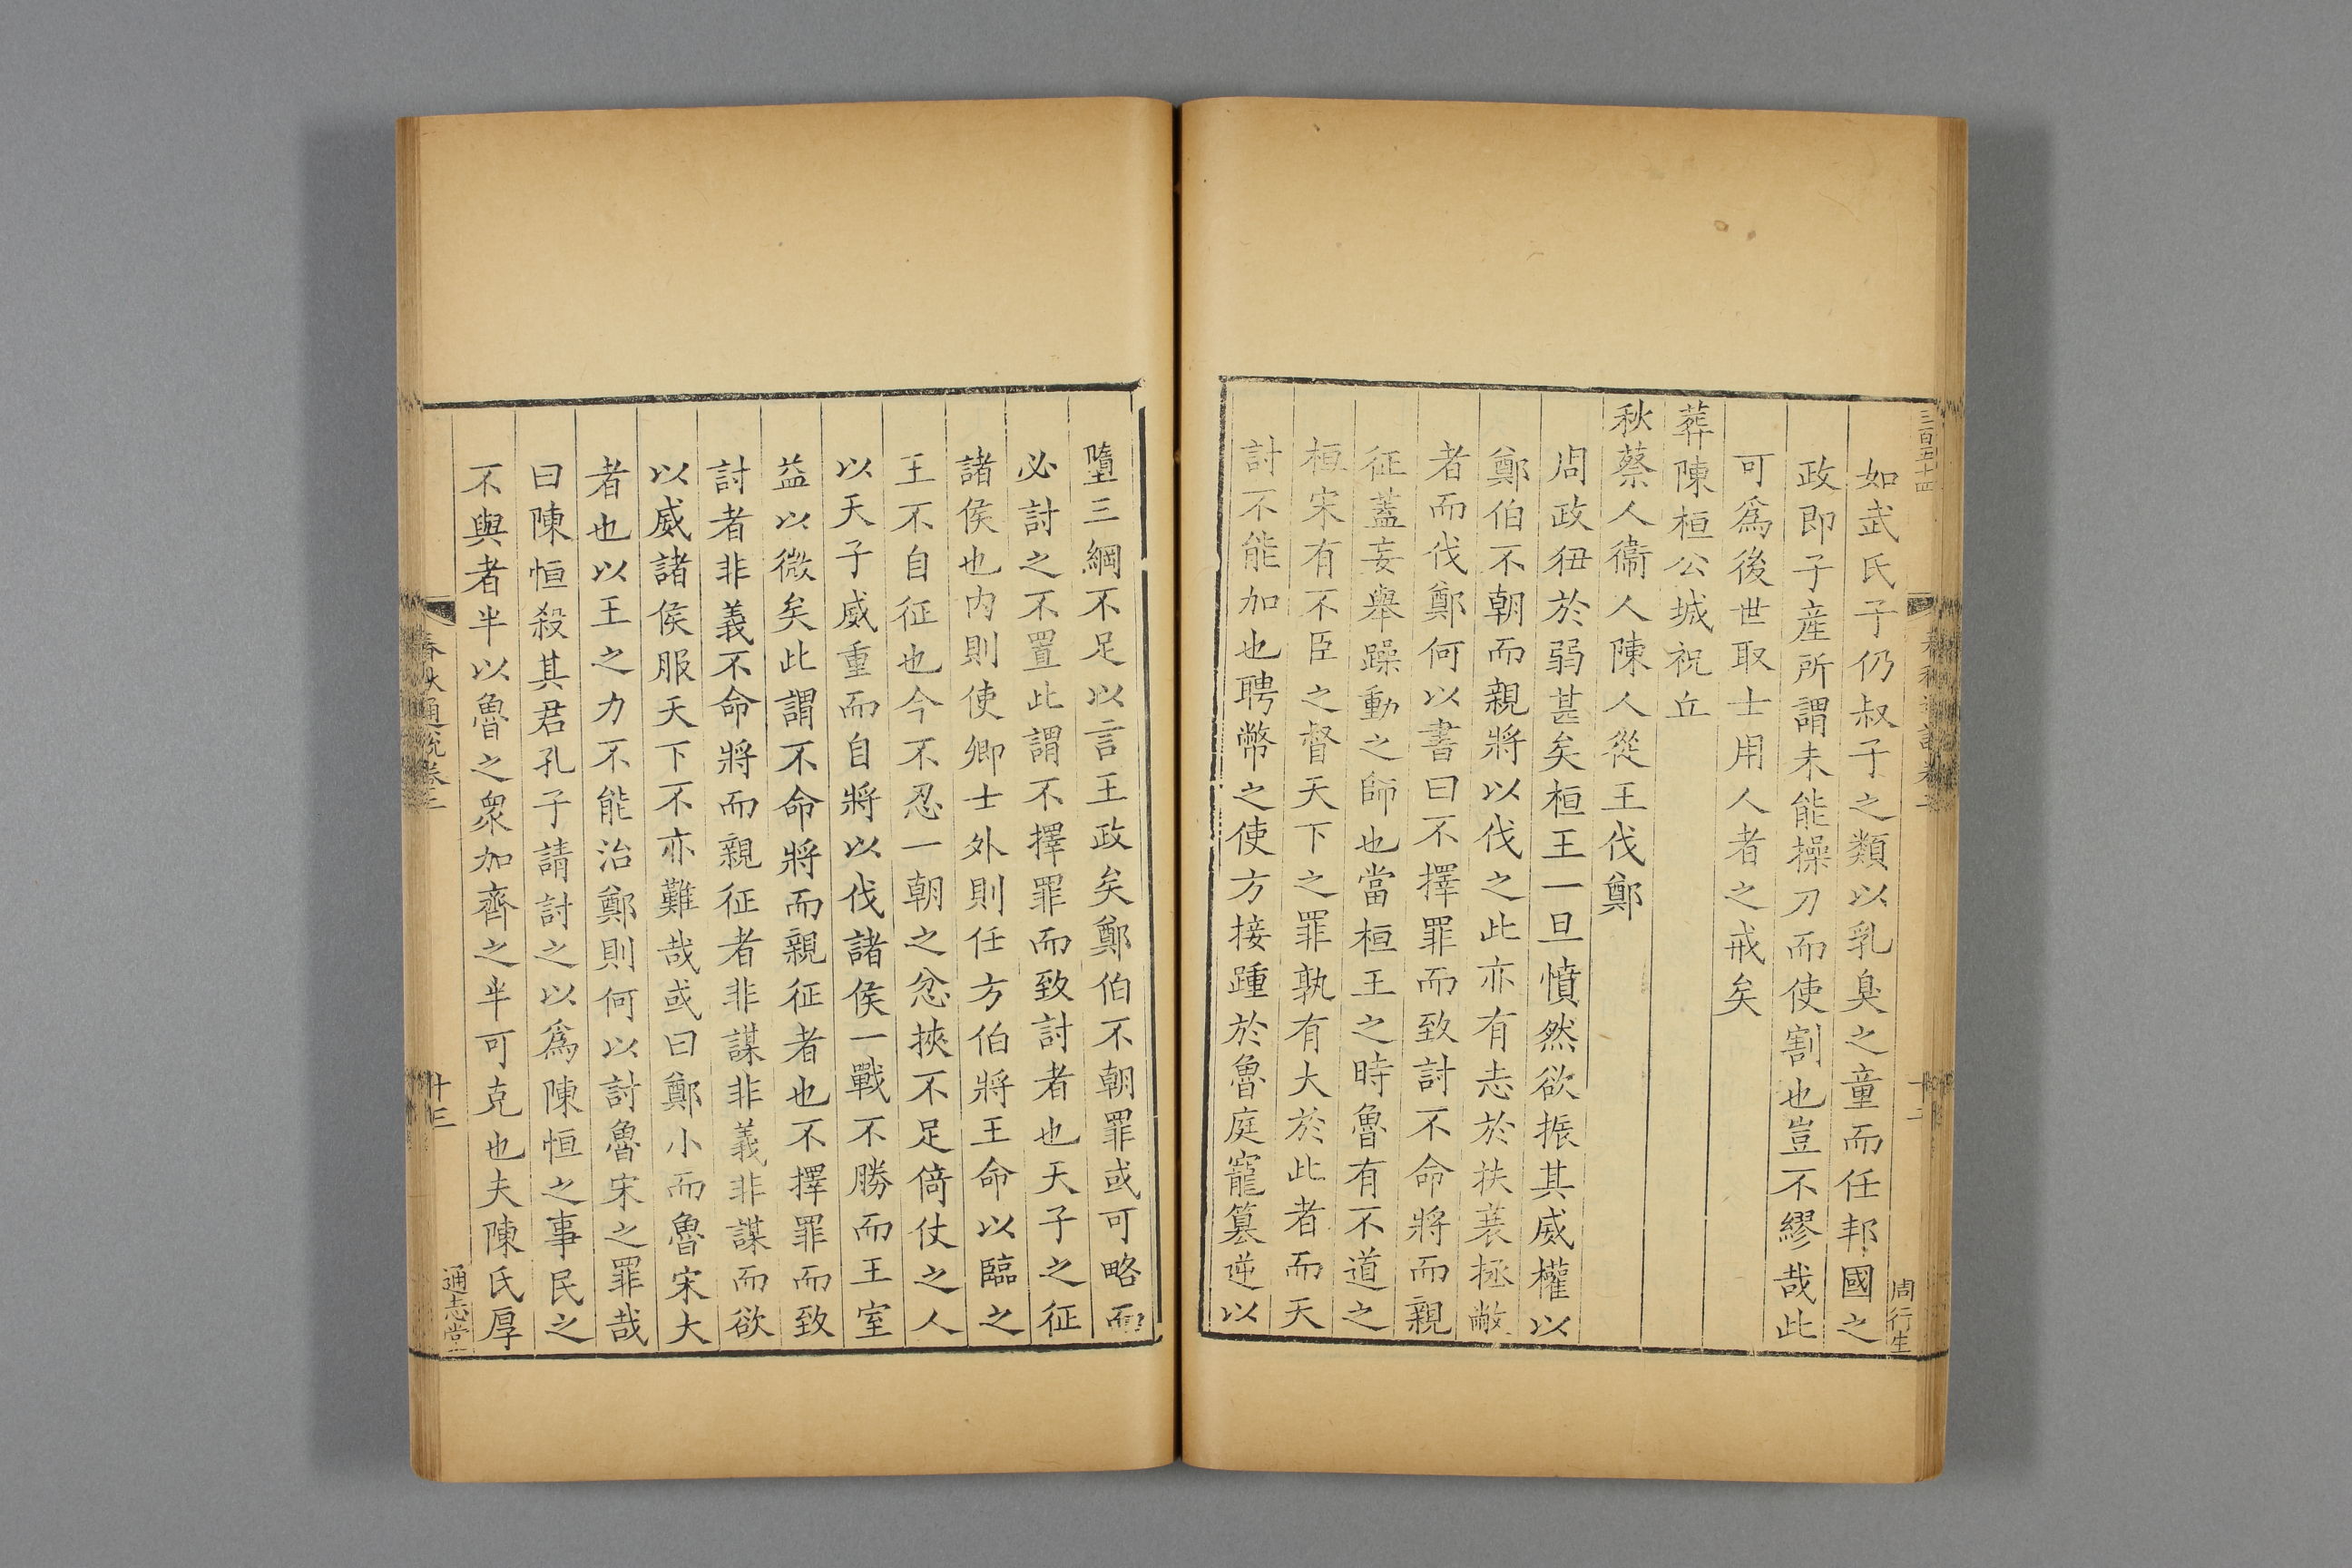 三百五十四
如武氏子仍叔子之類以乳臭之童而任邦國之
政即子產所謂未能操刀而使割也豈不繆哉此
可爲後世取士用人者之戒矣
葬陳桓公城祝丘
秋蔡人衞人陳人從王伐鄭
周政狃於弱甚矣桓王一旦憤然欲振其威權以
鄭伯不朝而親將以伐之此亦有志於扶衰拯敝
者而伐鄭何以書曰不擇罪而致討不命將而親
征蓋妄舉躁動之師也當桓王之時魯有不道之
桓宋有不臣之督天下之罪孰有大於此者而天
討不能加也聘幣之使方接踵於魯庭寵篡逆以
周行生
墮三綱不足以言王政矣鄭伯不朝罪或可略而
必討之不置此謂不擇罪而致討者也天子之征
諸侯也内則使卿士外則任方伯將王命以臨之
王不自征也今不忍一朝之忿挾不足倚仗之人
以天子威重而自將以伐諸侯一戰不勝而王室
益以微矣此謂不命將而親征者也不擇罪而致
討者非義不命將而親征者非謀非義非謀而欲
以威諸侯服天下不亦難哉或曰鄭小而魯宋大
者也以王之力不能治鄭則何以討魯宋之罪哉
曰陳恒殺其君孔子請討之以爲陳恒之事民之
不與者半以魯之衆加齊之半可克也夫陳氏厚
春秋通說卷二
十三
通志堂